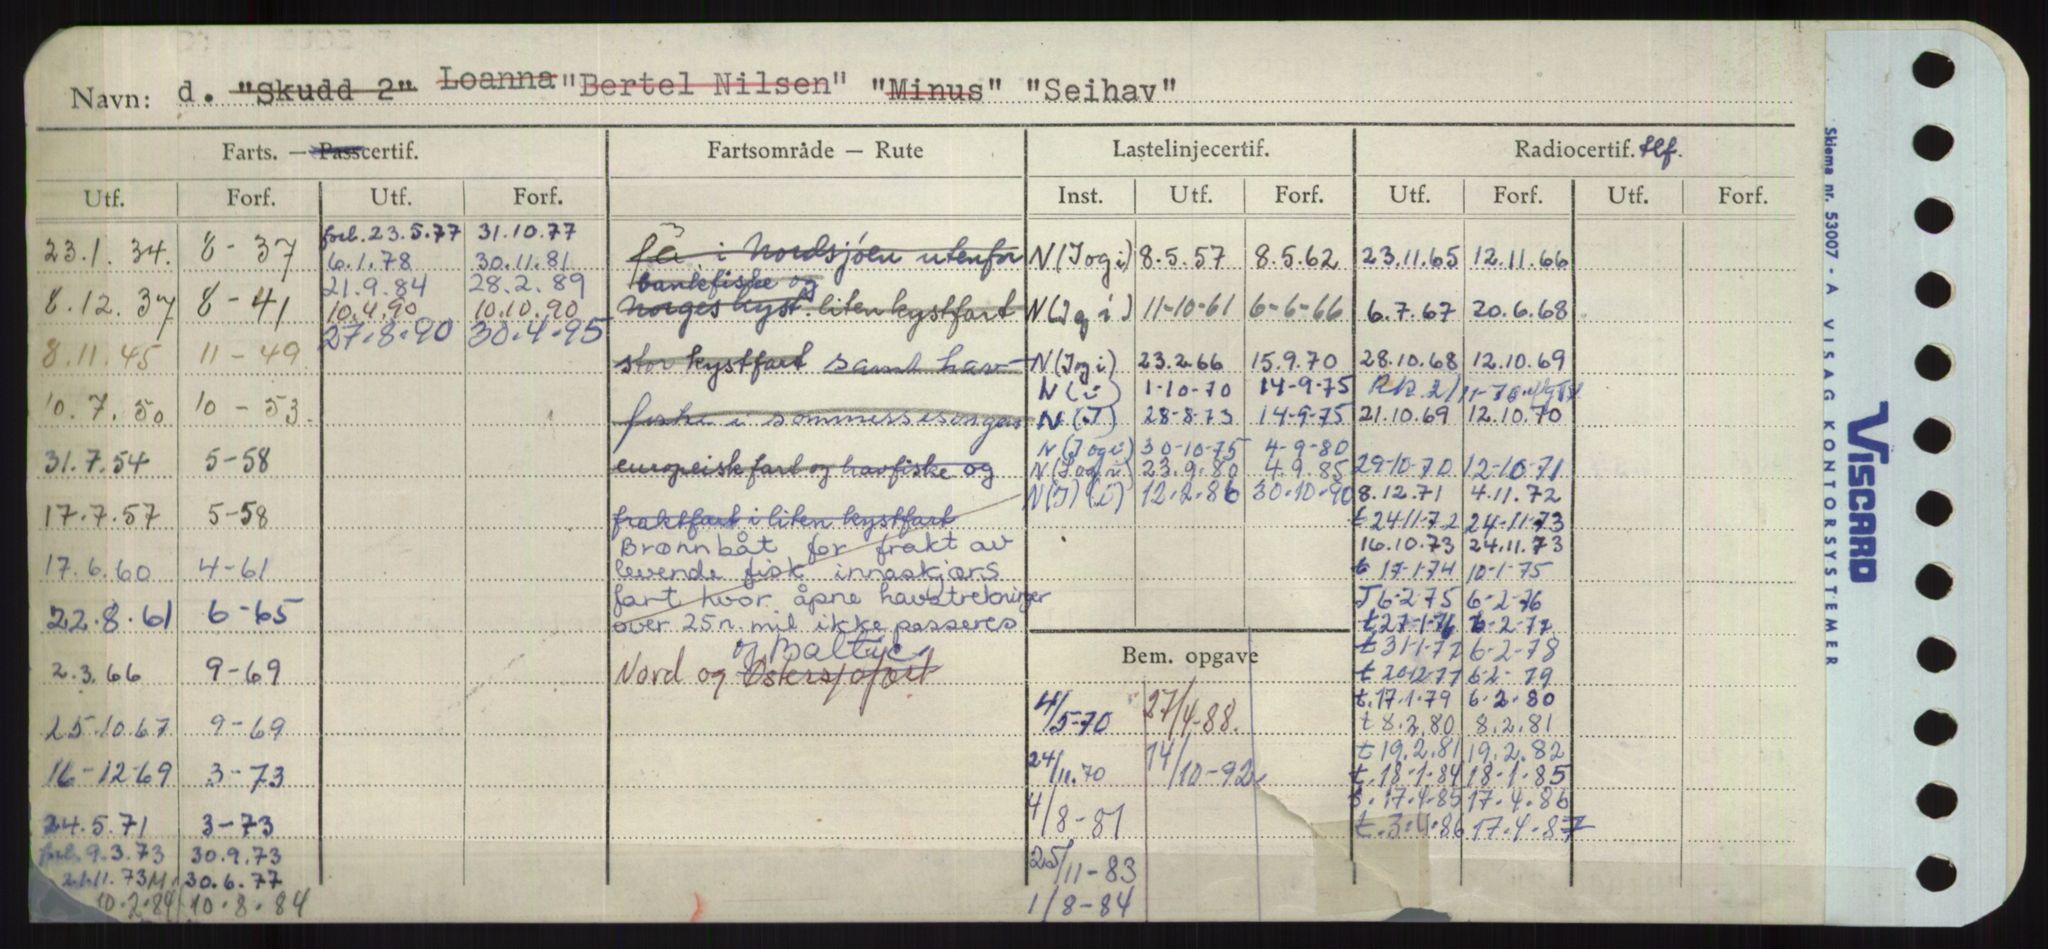 Navn: d. "Skudd 2" Loanna "Bertel Nilsen" "Minus" "Seihav"
Farts. — Passcertif. Fartsområde — Rute Lastelinjecertif. Radiocertif. tlf.
Utf. Forf. Utf. Forf. Inst. Utf. Forf. Utf. Forf. Utf. Forf.
23.1.34. 8-37
8.12.37 8-41
8.11.45 11-49
10.7.50 10-53.
31.7.54 5-58
17.7.57 5-58
17.6.60 4-61
22.8.61 6-65
2.3.66 9-69
25.10.67 9-69
16-12-69 3-73
24.5.71 3-73
forl. 9.3.73 30.9.73
21.11.73 30.6.77
10.2.84 10.8.84
forl. 23.5.77 31.10.77
6.1.78 30.11.81
21.9.84 28.2.89
10.4.90 10.10.90
27.8.90 30.4.95
få i Nordsjøen utenfor
bankefiske og
Norges kyst liten kystfart
stor kystfart samt hav-
fiske i sommersesongen
europeisk fart og havfiske og
fraktfart i liten kystfart
Brønnbåt for frakt av
levende fisk innaskjærs
fart hvor åpne havstrekninger
over 25 n. mil ikke passeres
og Baltic
Nord og Østersjøfart
N (I og i) 8.5.57 8.5.62
N (I g i) 11-10-61 6-6-66
N (I og i) 23.2.66 15.9.70
N (i) 1-10-70 14-9-75
N (I) 28-8-73 14-9-75
N (I og i) 30-10-75 4-9-80
N (I og i) 23.9.80 4.9.85
N (I) (i) 12.2.86 30.10.90
Bem. opgave
4/5-70 27/4-88.
24/11.70 14/10-92
4/8-81
25/11-83
1/8-84
23.11.65 12.11.66
6.7.67 20.6.68
28.10.68 12.10.69
21.10.69 12.10.70
29-10-70 12-10-71
8.12.71 4.11.72
t 24.11.72 24-11-73
16.10.73 24.11.73
t 17-1-74 10-1-75
T 6-2-75 6-2-76
t 27-1-76 6-2-77
t 31-1-77 6-2-78
t 20.12.77 6.2-79
t. 17.1.79 6.2.80
t 8.2.80 8.2.81
t 19.2.81 19.2.82
t. 18-1-84 18-1-85
t. 17.4.85 17.4.86
t. 3.4.86 17.4.87
Skjema nr. 53007 - A VISAG KONTORSYSTEMER
VISCARD